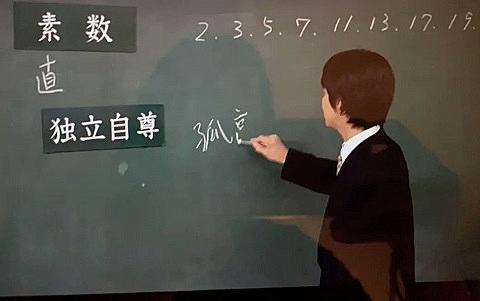 素数 2.3.5.7.11.13.17.19.
直
独立自尊 孤